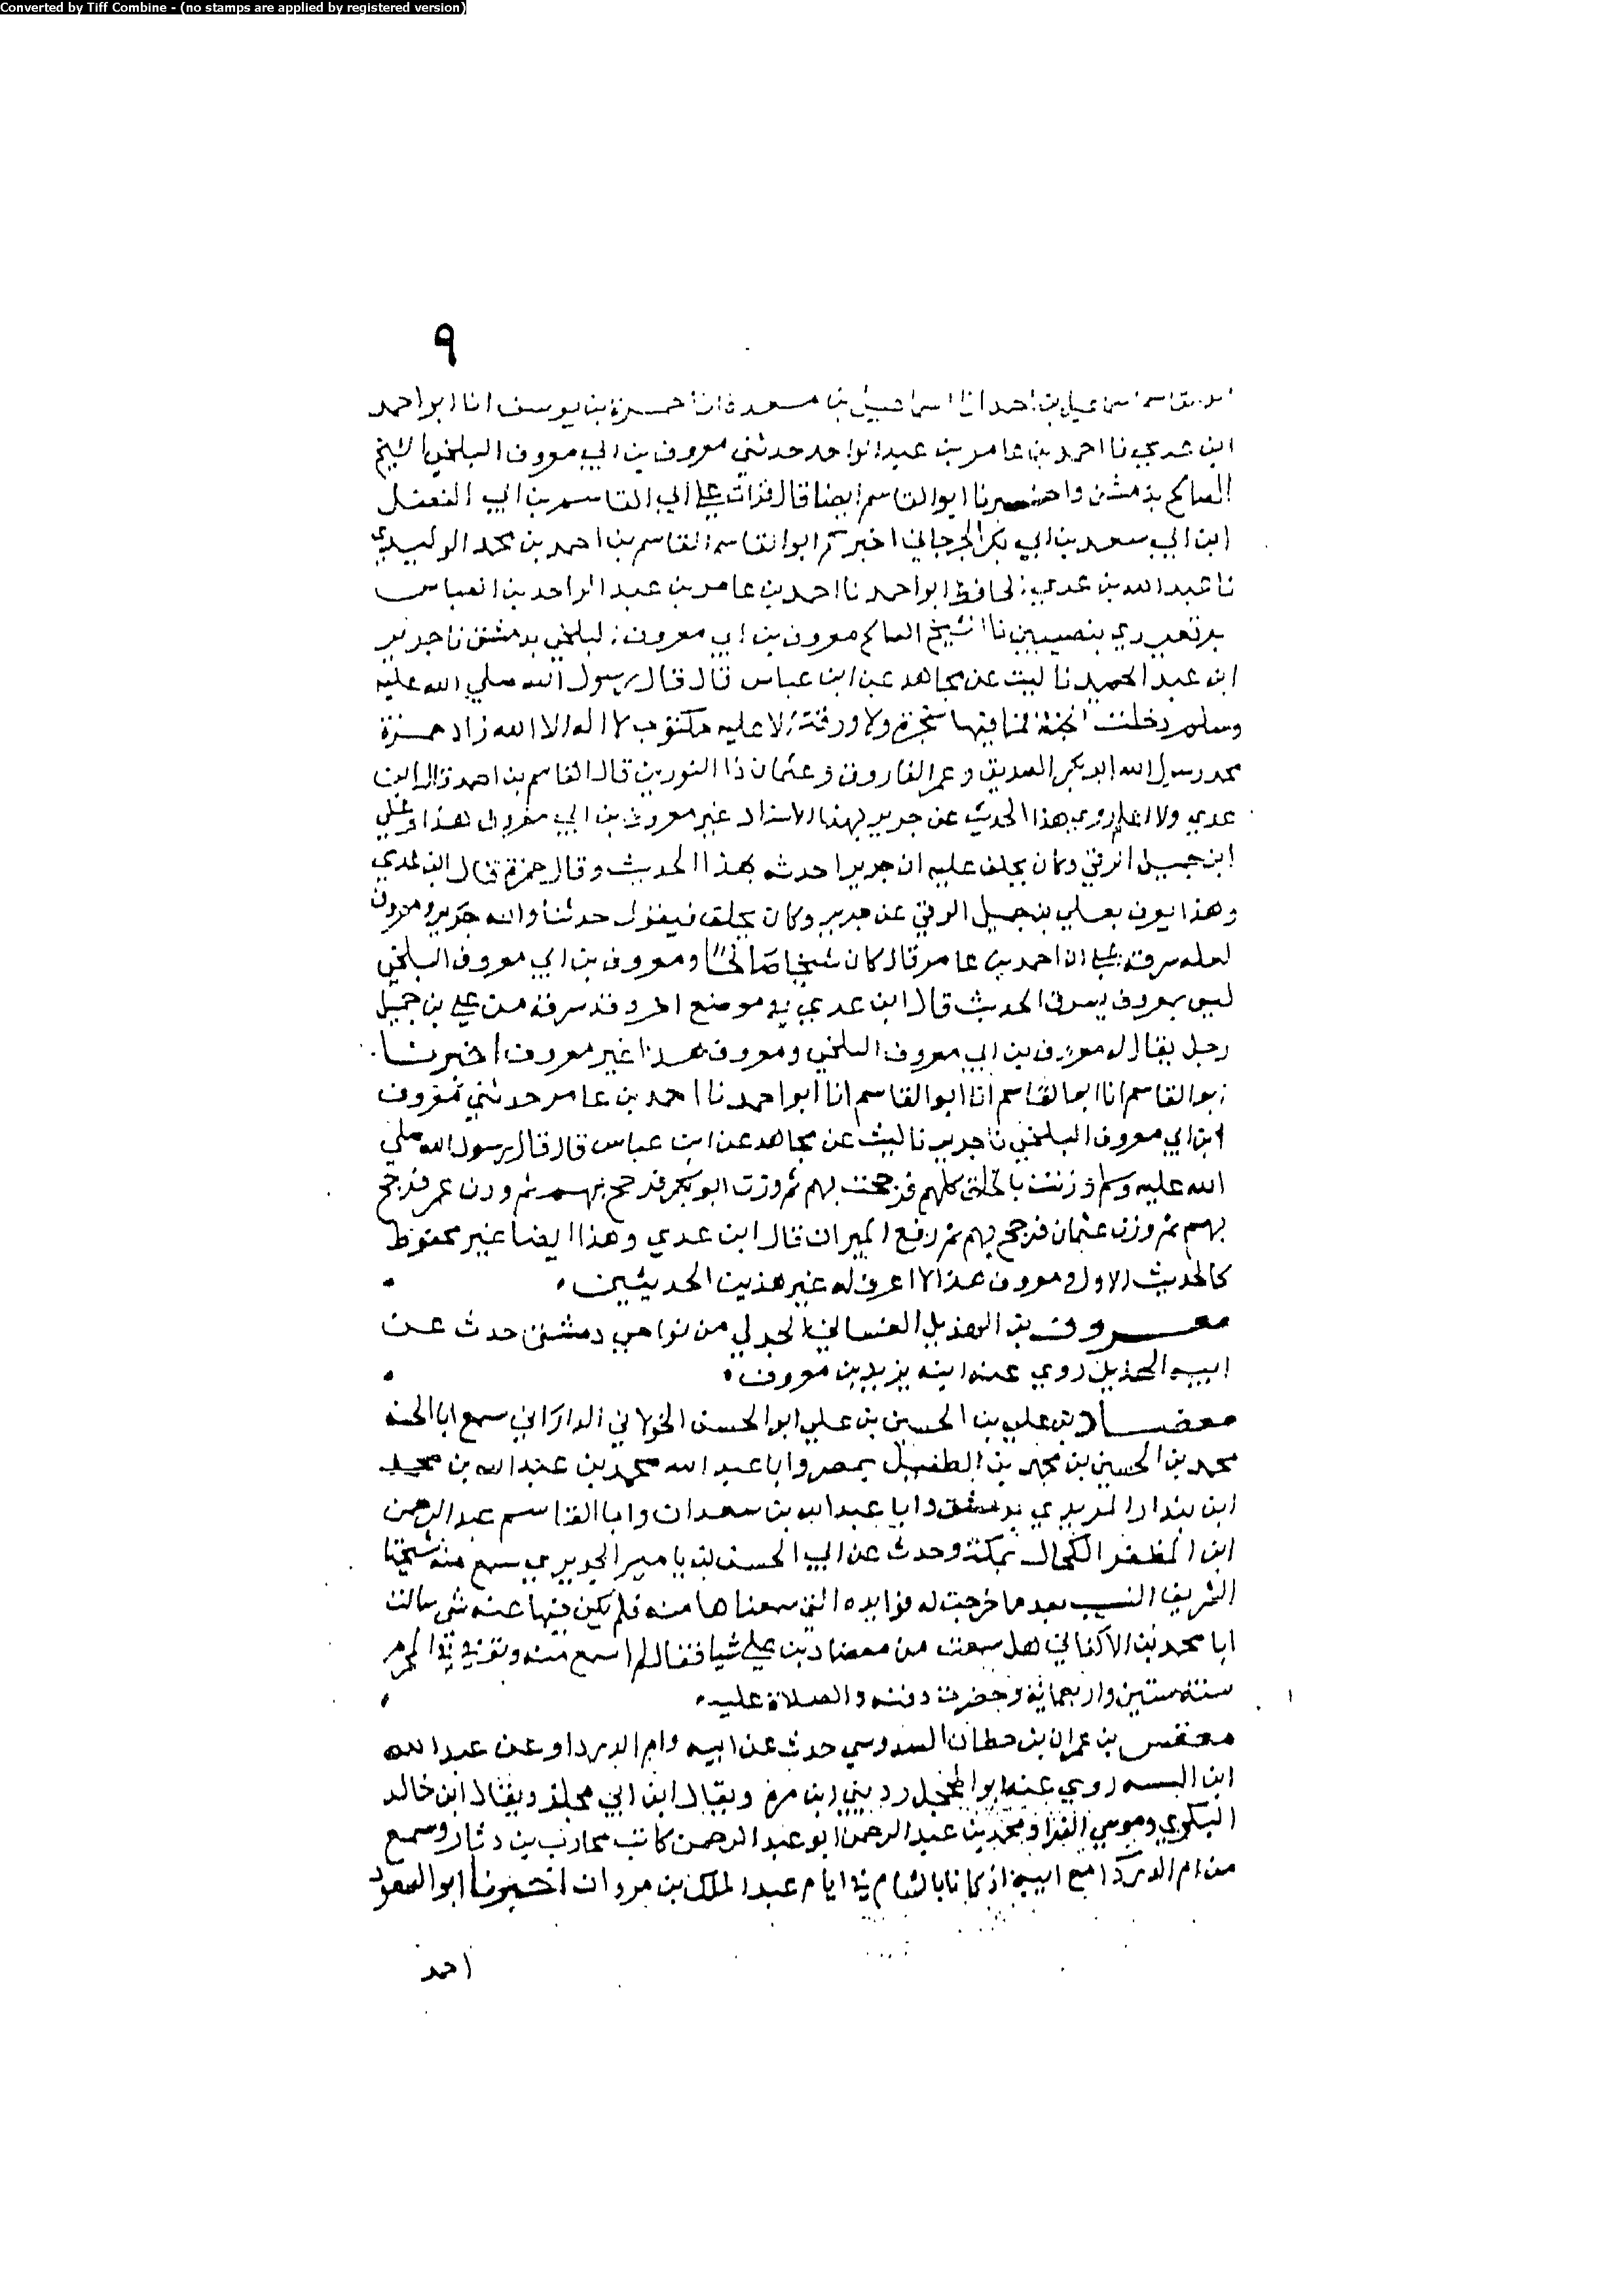 Converted by Tiff Combine - (no stamps are applied by registered version)
٩
ابو القاسم اسماعيل بن احمد انا اسماعيل بن مسعدة انا حمزة بن يوسف انا ابو احمد
ابن عدي نا احمد بن عامر بن عبد الواحد حدثني معروف بن ابي معروف البلخي الشيخ
الصالح بدمشق واخبرنا ابو القاسم ايضا قال قرات على ابي القاسم بن ابي الفضل
ابن ابي سعد بن ابي بكر الجرجاني اخبركم ابو القاسم القاسم بن احمد بن محمد الوليدي
نا عبد الله بن عدي الحافظ ابو احمد نا احمد بن عامر بن عبد الواحد بن العباس
بنصيبين نا الشيخ الصالح معروف بن ابي معروف البلخي بدمشق نا جرير
ابن عبد الحميد نا ليث عن مجاهد عن ابن عباس قال قال رسول الله صلي الله عليه
وسلم دخلت الجنة فما فيها شجرة ولا ورقة الا عليه مكتوب لا اله الا الله زاد حمزة
محمد رسول الله ابو بكر الصديق وعمر الفاروق وعثمان ذا النورين قال القاسم بن احمد قال ابن
عدي ولا اعلم روي هذا الحديث عن جرير بهذا الاسناد غير معروف بن ابي معروف هذا وعلي
ابن جميل الرقي وكان يحلف عليه ان جريرا حدثه بهذا الحديث وقال حمزة قال ابن عدي
وهذا يعرف بعلي بن جميل الرقي عن جرير وكان يحلف فيقول حدثنا والله جرير ومعروف
لعله سرقه علي ان احمد بن عامر قال كان شيخا صالحا ومعروف بن ابي معروف البلخي
ليس بمعروف يسرق الحديث قال ابن عدي في موضع اخر وقد سرقه من علي بن جميل
رجل يقال له معروف بن ابي معروف البلخي ومعروف هذا غير معروف اخبرنا
ابو القاسم انا ابو القاسم انا ابو القاسم انا ابو احمد نا احمد بن عامر حدثني معروف
ابن ابي معروف البلخي نا جرير نا ليث عن مجاهد عن ابن عباس قال قال رسول الله صلي
الله عليه وسلم وزنت بالخلق كلهم فرجحت بهم ثم وزن ابو بكر فرجح بهم ثم وزن عمر فرجح
بهم ثم وزن عثمان فرجح بهم ثم رفع الميزان قال ابن عدي وهذا ايضا غير محفوظ
كالحديث الاول ومعروف هذا لا اعرف له غير هذين الحديثين
معروف بن الهذيل الغساني الجدلي من نواحي دمشق حدث عن
ابيه الهذيل روي عنه ابنه يزيد بن معروف
معضاد بن علي بن الحسين بن علي ابو الحسن الخولاني الداراني سمع ابا الحسن
محمد بن الحسين بن محمد بن الطفال بمصر وابا عبد الله محمد بن عبد الله بن محمد
ابن بندار المرندي بدمشق وابا عبد الله بن سعدان وابا القاسم عبد الرحمن
ابن المظفر الكحال بمكة وحدث عن ابي الحسن الحريري سمع منه شيخنا
الشريف النسيب بعد ما خرجت له فوايده التي سمعناها منه فلم يكن فيها عنه شي سالت
ابا محمد بن الاكفاني هل سمعت من معضاد بن علي شيا فقال لم اسمع منه وتوفي في المحرم
سنة ستين واربعماية وحضرت دفنه والصلاة عليه
معفس بن عمران بن حطان السدوسي حدث عن ابيه وام الدرداء وعن عبد الله
روي عنه ابو المحجل رديني بن مرة ويقال ابن ابي مجلز ويقال ابن خالد
البكري وموسي الفرا ومحمد بن عبد الرحمن ابو عبد الرحمن كاتب محارب بن دثار وسمع
من ام الدردا مع ابيه اذ كانا بالشام في ايام عبد الملك بن مروان اخبرنا ابو السعود
احمد